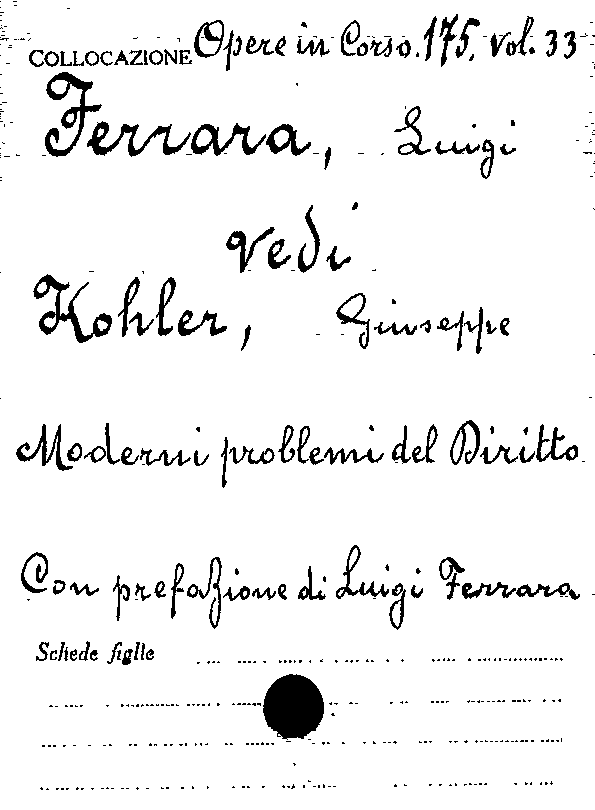 COLLOCAZIONE Opere in Corso. 175. vol. 33
Ferrara, Luigi
vedi
Kohler, Giuseppe
Moderni problemi del Diritto
Con prefazione di Luigi Ferrara
Schede figlie